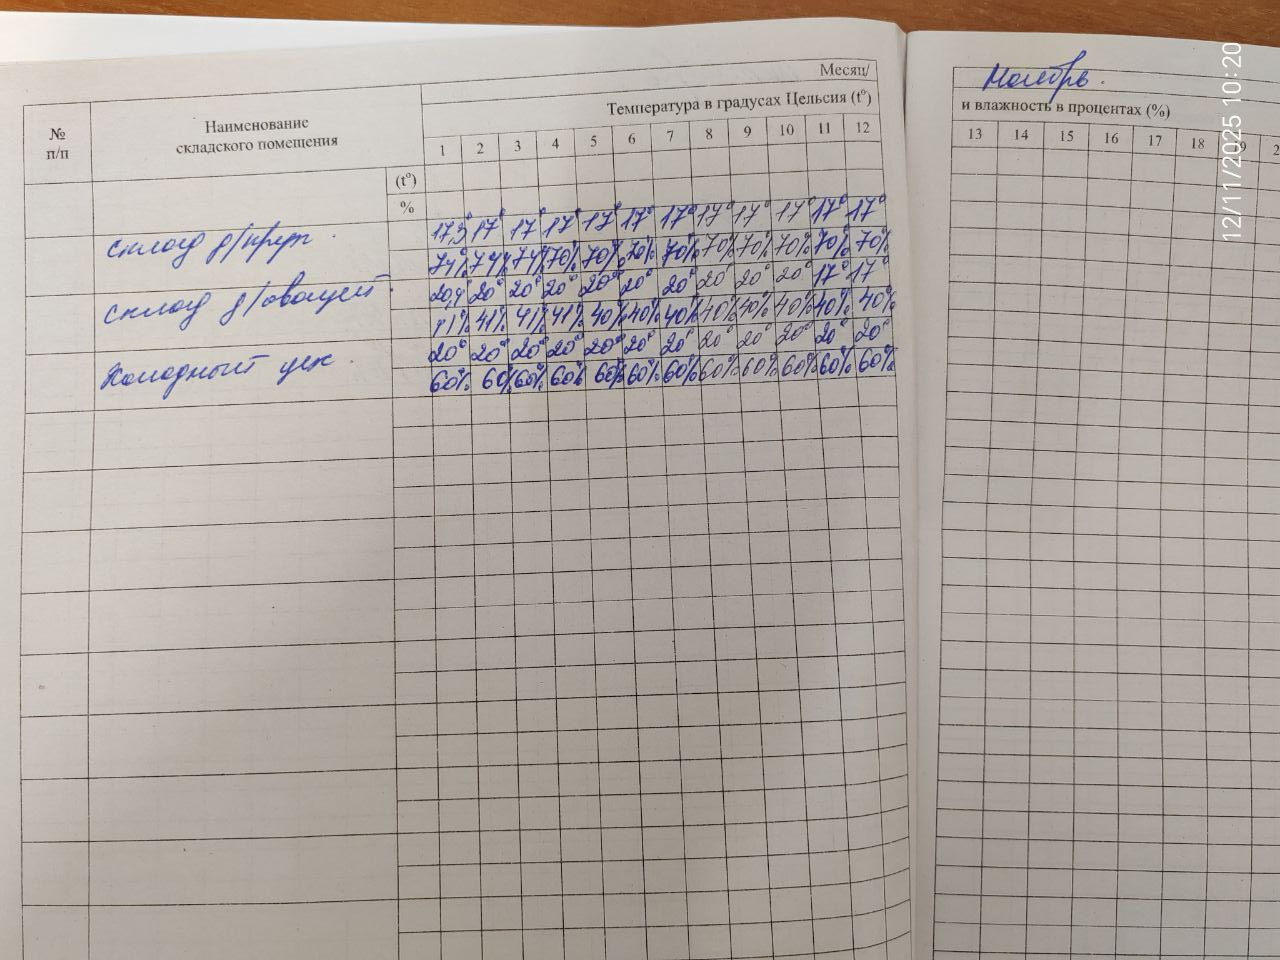 Месяц/ Ноябрь.
№ п/п
Наименование складского помещения
Температура в градусах Цельсия (t°) и влажность в процентах (%)
1 2 3 4 5 6 7 8 9 10 11 12 13 14 15 16 17 18
(t°)
%
17,3 17° 17° 17° 17° 17° 17° 17° 17° 17° 17° 17°
склад д/круп. 74% 74% 74% 70% 70% 70% 70% 70% 70% 70% 70% 70%
20,4° 20° 20° 20° 20° 20° 20° 20° 20° 20° 17° 17°
склад д/овощей. 41% 41% 41% 40% 40% 40% 40% 40% 40% 40% 40%
20° 20° 20° 20° 20° 20° 20° 20° 20° 20° 20° 20°
Холодный цех. 60% 60% 60% 60% 60% 60% 60% 60% 60% 60% 60% 60%
12/11/2025 10:20